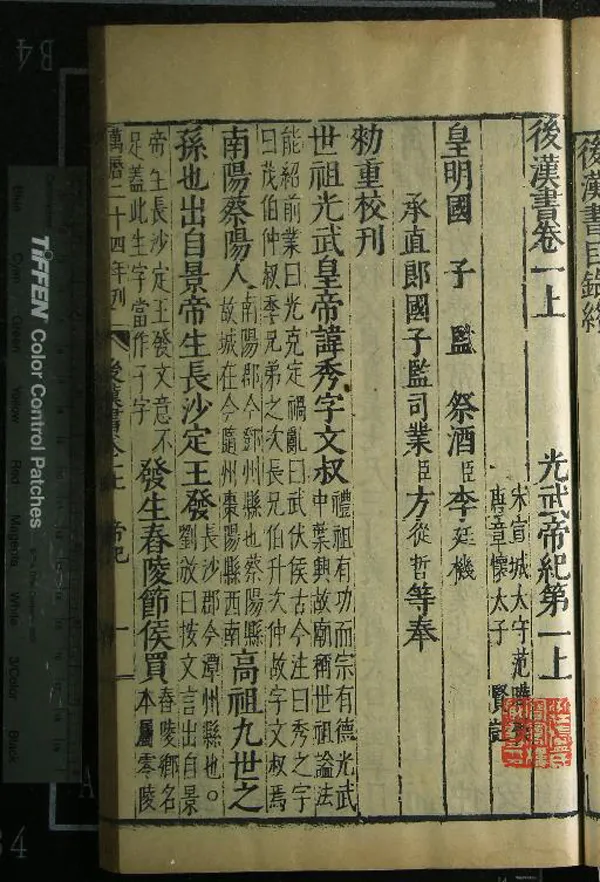 後漢書卷一上
光武帝紀第一上
宋宣城太守范曄
唐章懷太子 賢
皇明國子監祭酒臣李廷機
承直郎國子監司業臣方從哲等奉
勑重校刊
世祖光武皇帝諱秀字文叔
禮祖有功而宗有德光武
中葉興故廟稱世祖謚法
能紹前業曰光克定禍亂曰武伏侯古今注曰秀之字
曰茂伯仲叔季兄弟之次長兄伯升次仲故字文叔焉
南陽蔡陽人
南陽郡今鄧州縣也蔡陽縣
故城在今隨州棗陽縣西南
高祖九世之
孫也出自景帝生長沙定王發
長沙郡今潭州縣也○
劉攽曰按文言出自景
帝生長沙定王發文意不
足蓋此生字當作子字
發生舂陵節侯買
舂陵鄉名
本屬零陵
萬曆二十四年刊
後漢書卷一上 帝紀 一
後漢書目錄終
TIFFEN Color Control Patches
Blue
Cyan
Green
Yellow
Red
Magenta
White
3/Color
Black
B4
A